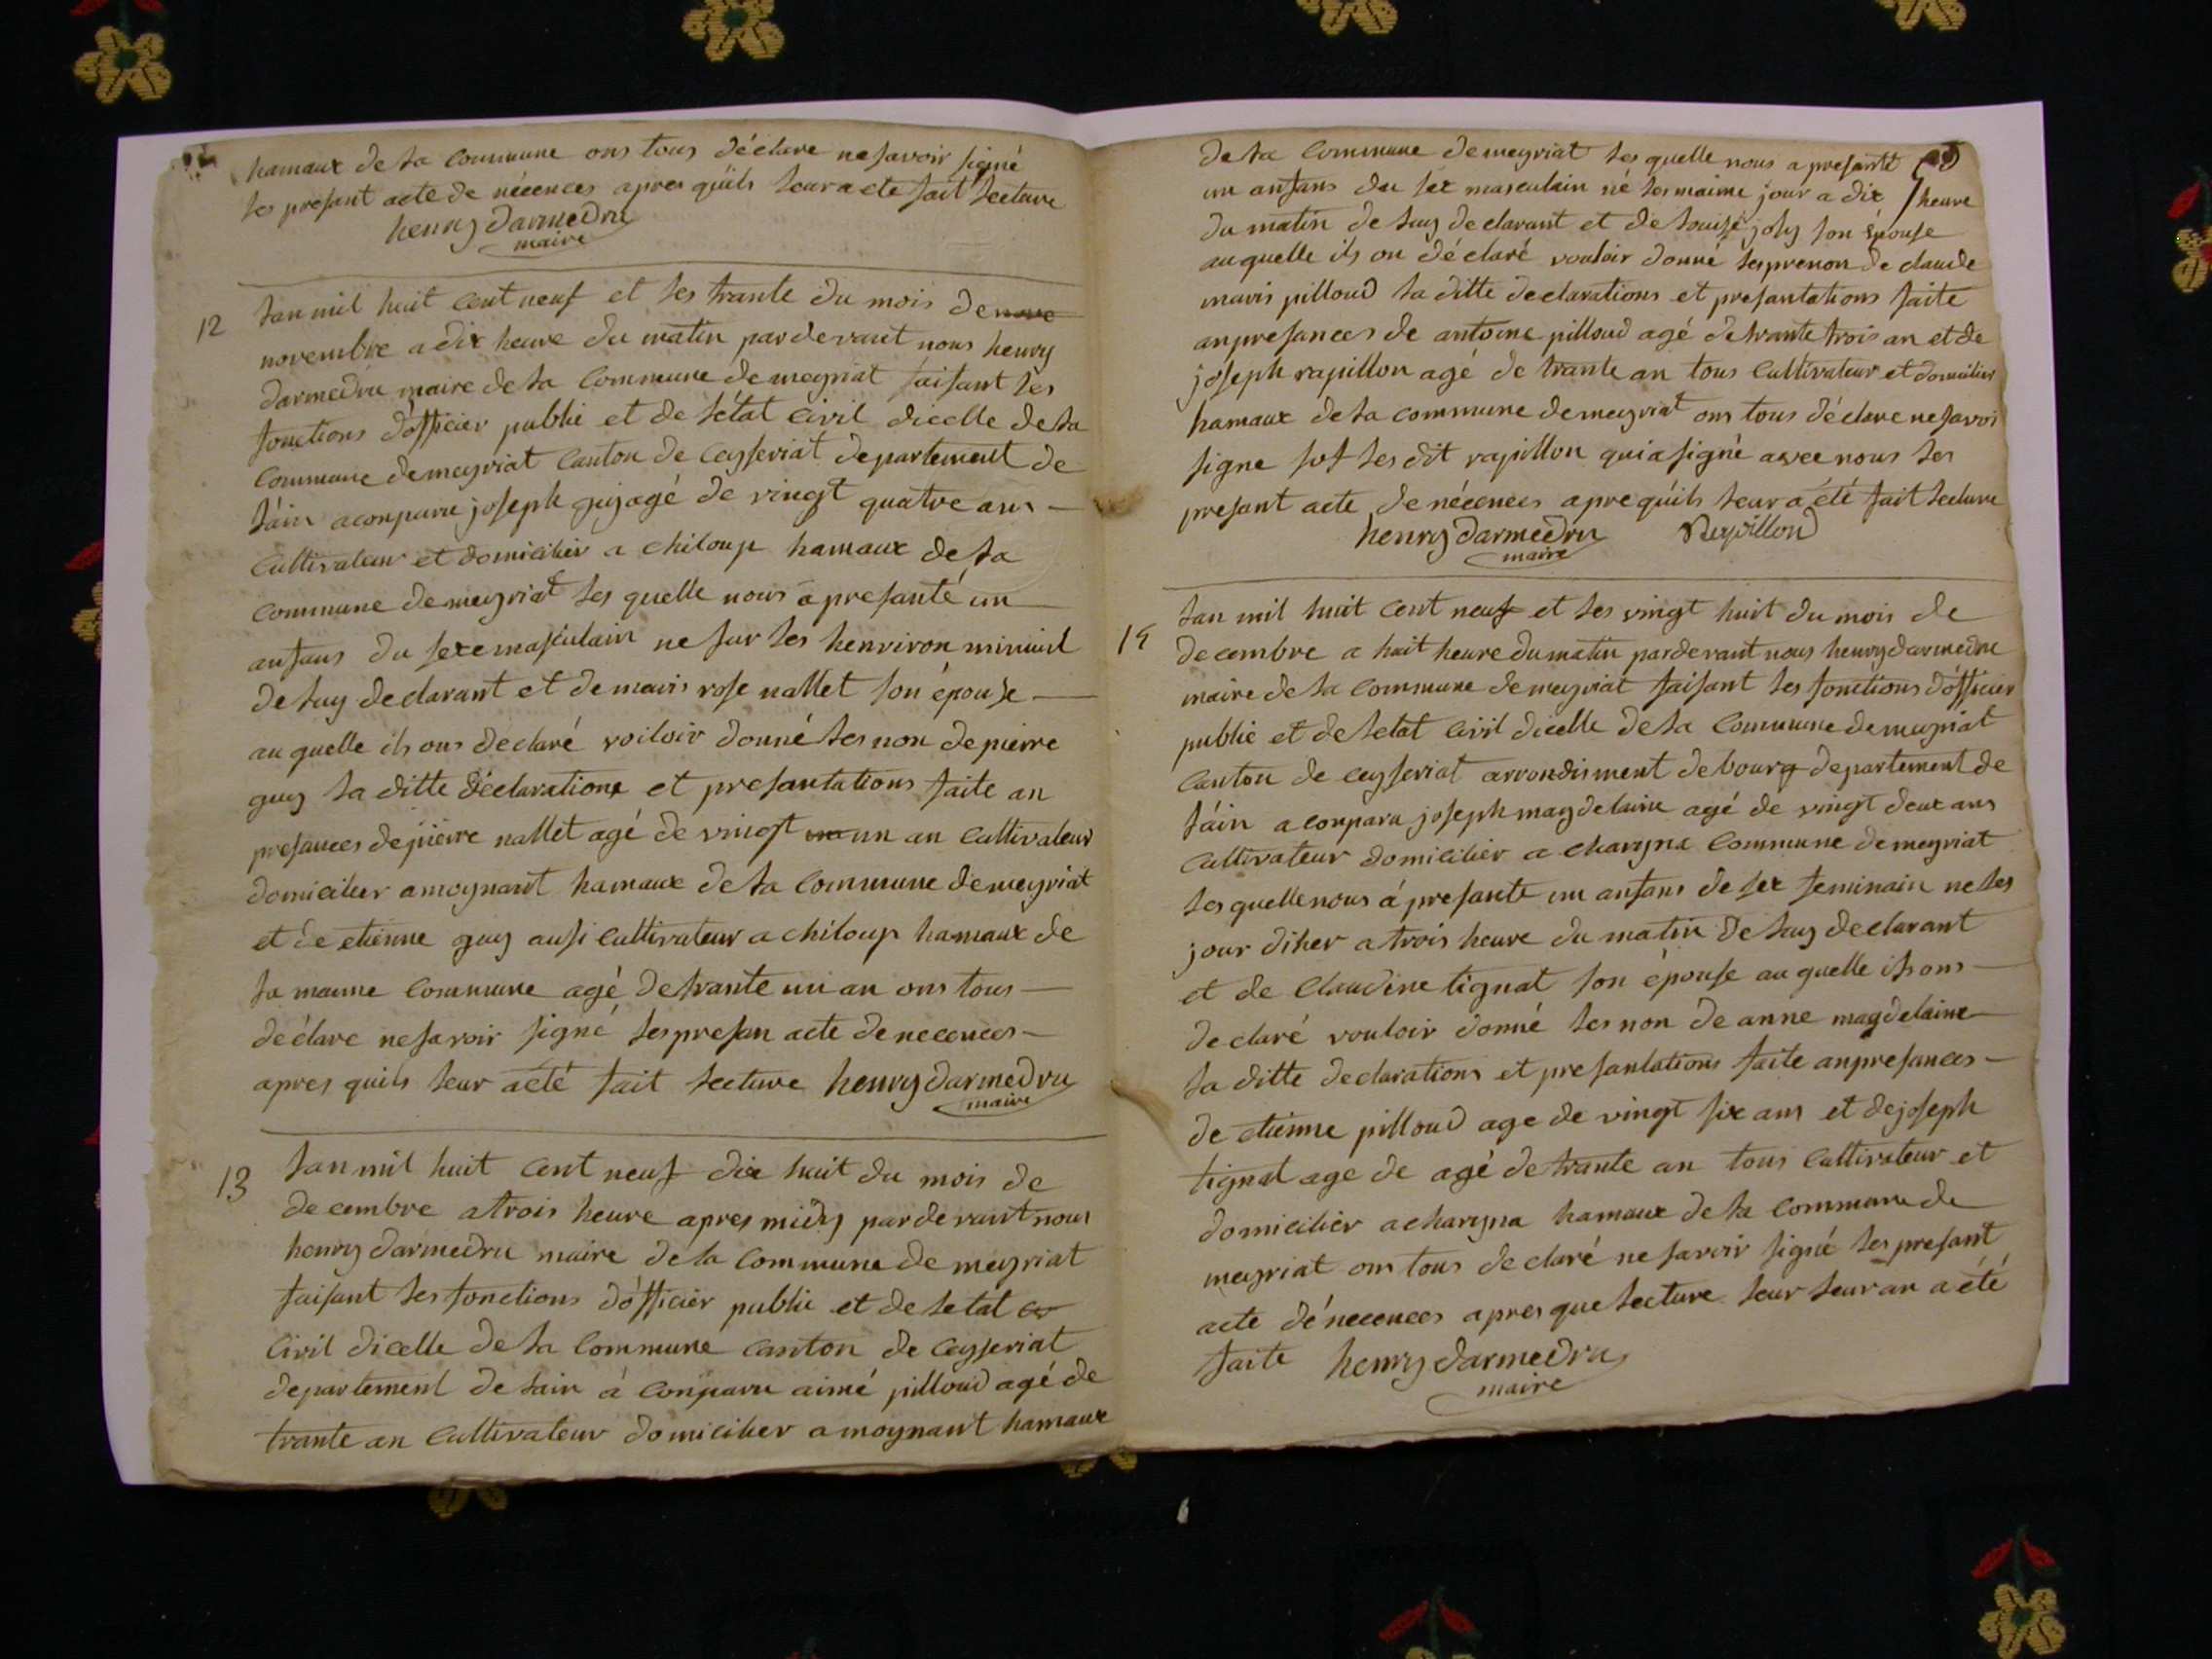 hamaux de la commune ons tous déclare ne savoir signé
les presant acte de nécences apres quils leur a ete fait lecture
henry darmedru
maire
12
lan mil huit cent neuf et les trante du mois de nove
novembre a dix heure du matin par devant nous henry
darmedru maire de la commune de meyriat faisant les
fonctions dofficier publie et de létat civil dicelle de la
commune de meyriat canton de ceyseriat departement de
láin a conparu joseph guy agé de vingt quatre ans
cultivateur et domicilier a chiloup hamaux de la
commune de meyriat les quelle nous á presanté un
anfans du sexe masculain ne sur les henviron minuit
de luy declarant et de maris rose nallet son épouse
au quelle ils ons déclaré voiloir donné les non de pierre
guy la ditte déclarations et presantations faite an
presances de pierre nallet agé de vingt un an cultivateur
domicilier a moynant hamaux de la commune de meyriat
et de etienne guy ausi cultivateur a chiloup hamaux de
la maime commune agé de trante un an ons tous
déclare ne savoir signé les presan acte de necences
apres quils leur a eté fait lecture henry darmedru
maire
13
lan mil huit cent neuf dix huit du mois de
decembre a trois heure apres midy par devant nous
henry darmedru maire de la commune de meyriat
faisant les fonctions dofficier publie et de letat
civil dicelle de la commune canton de ceyseriat
departement de lain á conparu aimé pilloud agé de
trante an cultivateur domicilier a moynant hamaux
de la commune de meyriat les quelle nous a presanté
un anfans du sex masculain né les maime jour a dix heure
du matin de luy declarant et de louise joly son épouse
au quelle ils on déclaré vouloir donné les prenon de claude
maris pilloud la ditte declarations et presantations faite
an presances de antoine pilloud agé de trante trois an et de
joseph rapillon agé de trante an tous cultivateur et domicilier
hamaux de la commune de meyriat ons tous déclare ne savoi
signe sof les dit rapillon qui a signé avec nous les
presant acte de nécences apre quils leur a été fait lecture
henry darmedru Repilloud
maire
14
lan mil huit cent neuf et les vingt huit du mois de
decembre a huit heure du matin par devant nous henry darmedru
maire de la commune de meyriat faisant les fonctions dofficier
publie et de letat civil dicelle de la commune de meyriat
canton de ceyseriat arrondisment de bourg departement de
láin a conparu joseph magdelaine agé de vingt deux ans
cultivateur domicilier a charyna commune de meyriat
les quelle nous á presante un anfans de sex feminain ne les
jour diher a trois heure du matin de luy declarant
et de claudine tignat son épouse au quelle ils ons
declaré vouloir donné les non de anne magdelaine
la ditte declarations et presantations faite an presances
de etienne pilloud age de vingt six ans et de joseph
tignat age de agé de trante an tous cultivateur et
domicilier a charyna hamaux de la commune de
meyriat ons tous declaré ne savoir signé les presant
acte dé necences apres que lecture leur leur an a été
faite henry darmedru
maire